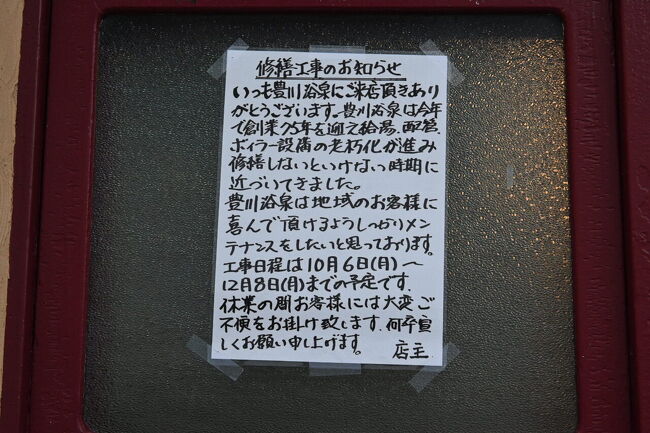 修繕工事のお知らせ
いつも豊川浴泉にご来店頂きあり
がとうございます。豊川浴泉は今年
で創業75年を迎え給湯、配管、
ボイラー設備の老朽化が進み
修繕しないといけない時期に
近づいてきました。
豊川浴泉は地域のお客様に
喜んで頂けるようしっかりメン
テナンスをしたいと思っております。
工事日程は10月6日(月)〜
12月8日(月)までの予定です。
休業の間お客様には大変ご
不便をお掛け致します。何卒宜
しくお願い申し上げます。
店主